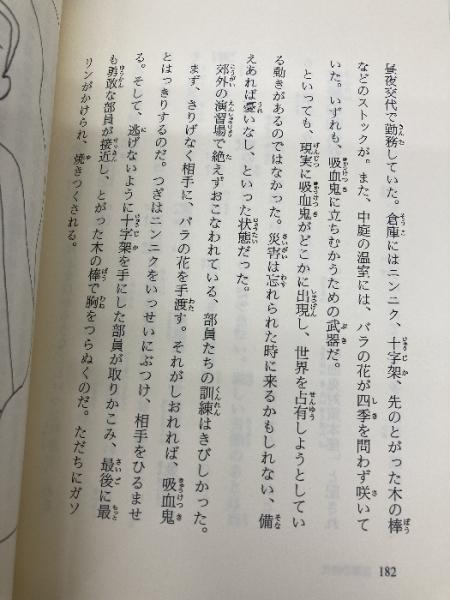 昼夜交代で勤務していた。倉庫にはニンニク、十字架、先のとがった木の棒
などのストックが。また、中庭の温室には、バラの花が四季を問わず咲いて
いた。いずれも、吸血鬼に立ちむかうための武器だ。
といっても、現実に吸血鬼がどこかに出現し、世界を占有しようとしてい
る動きがあるのではなかった。災害は忘れられた時に来るかもしれない、備
えあれば憂いなし、といった状態だった。
郊外の演習場で絶えずおこなわれている、部員たちの訓練はきびしかった。
まず、さりげなく相手に、バラの花を手渡す。それがしおれれば、吸血鬼
とはっきりするのだ。つぎはニンニクをいっせいにぶつけ、相手をひるませ
る。そして、逃げないように十字架を手にした部員が取りかこみ、最後に最
も勇敢な部員が接近し、とがった木の棒で胸をつらぬくのだ。ただちにガソ
リンがかけられ、焼きつくされる。
182